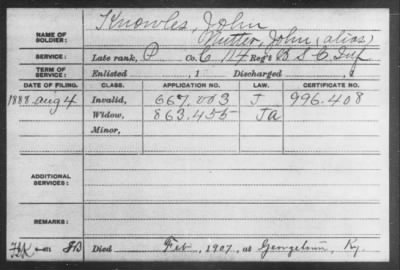 NAME OF SOLDIER: Knowles, John
Nutter, John (alias)
SERVICE: Late rank, P Co. C 14 Reg't U S C Inf
TERM OF SERVICE: Enlisted , 1 Discharged , 1
DATE OF FILING. CLASS. APPLICATION NO. LAW. CERTIFICATE NO.
1888 Aug 4 Invalid, 667.003 J 996.408
Widow, 863.455 Ja
Minor,
ADDITIONAL SERVICES:
REMARKS:
Died Feb , 1907, at Georgetown, Ky.